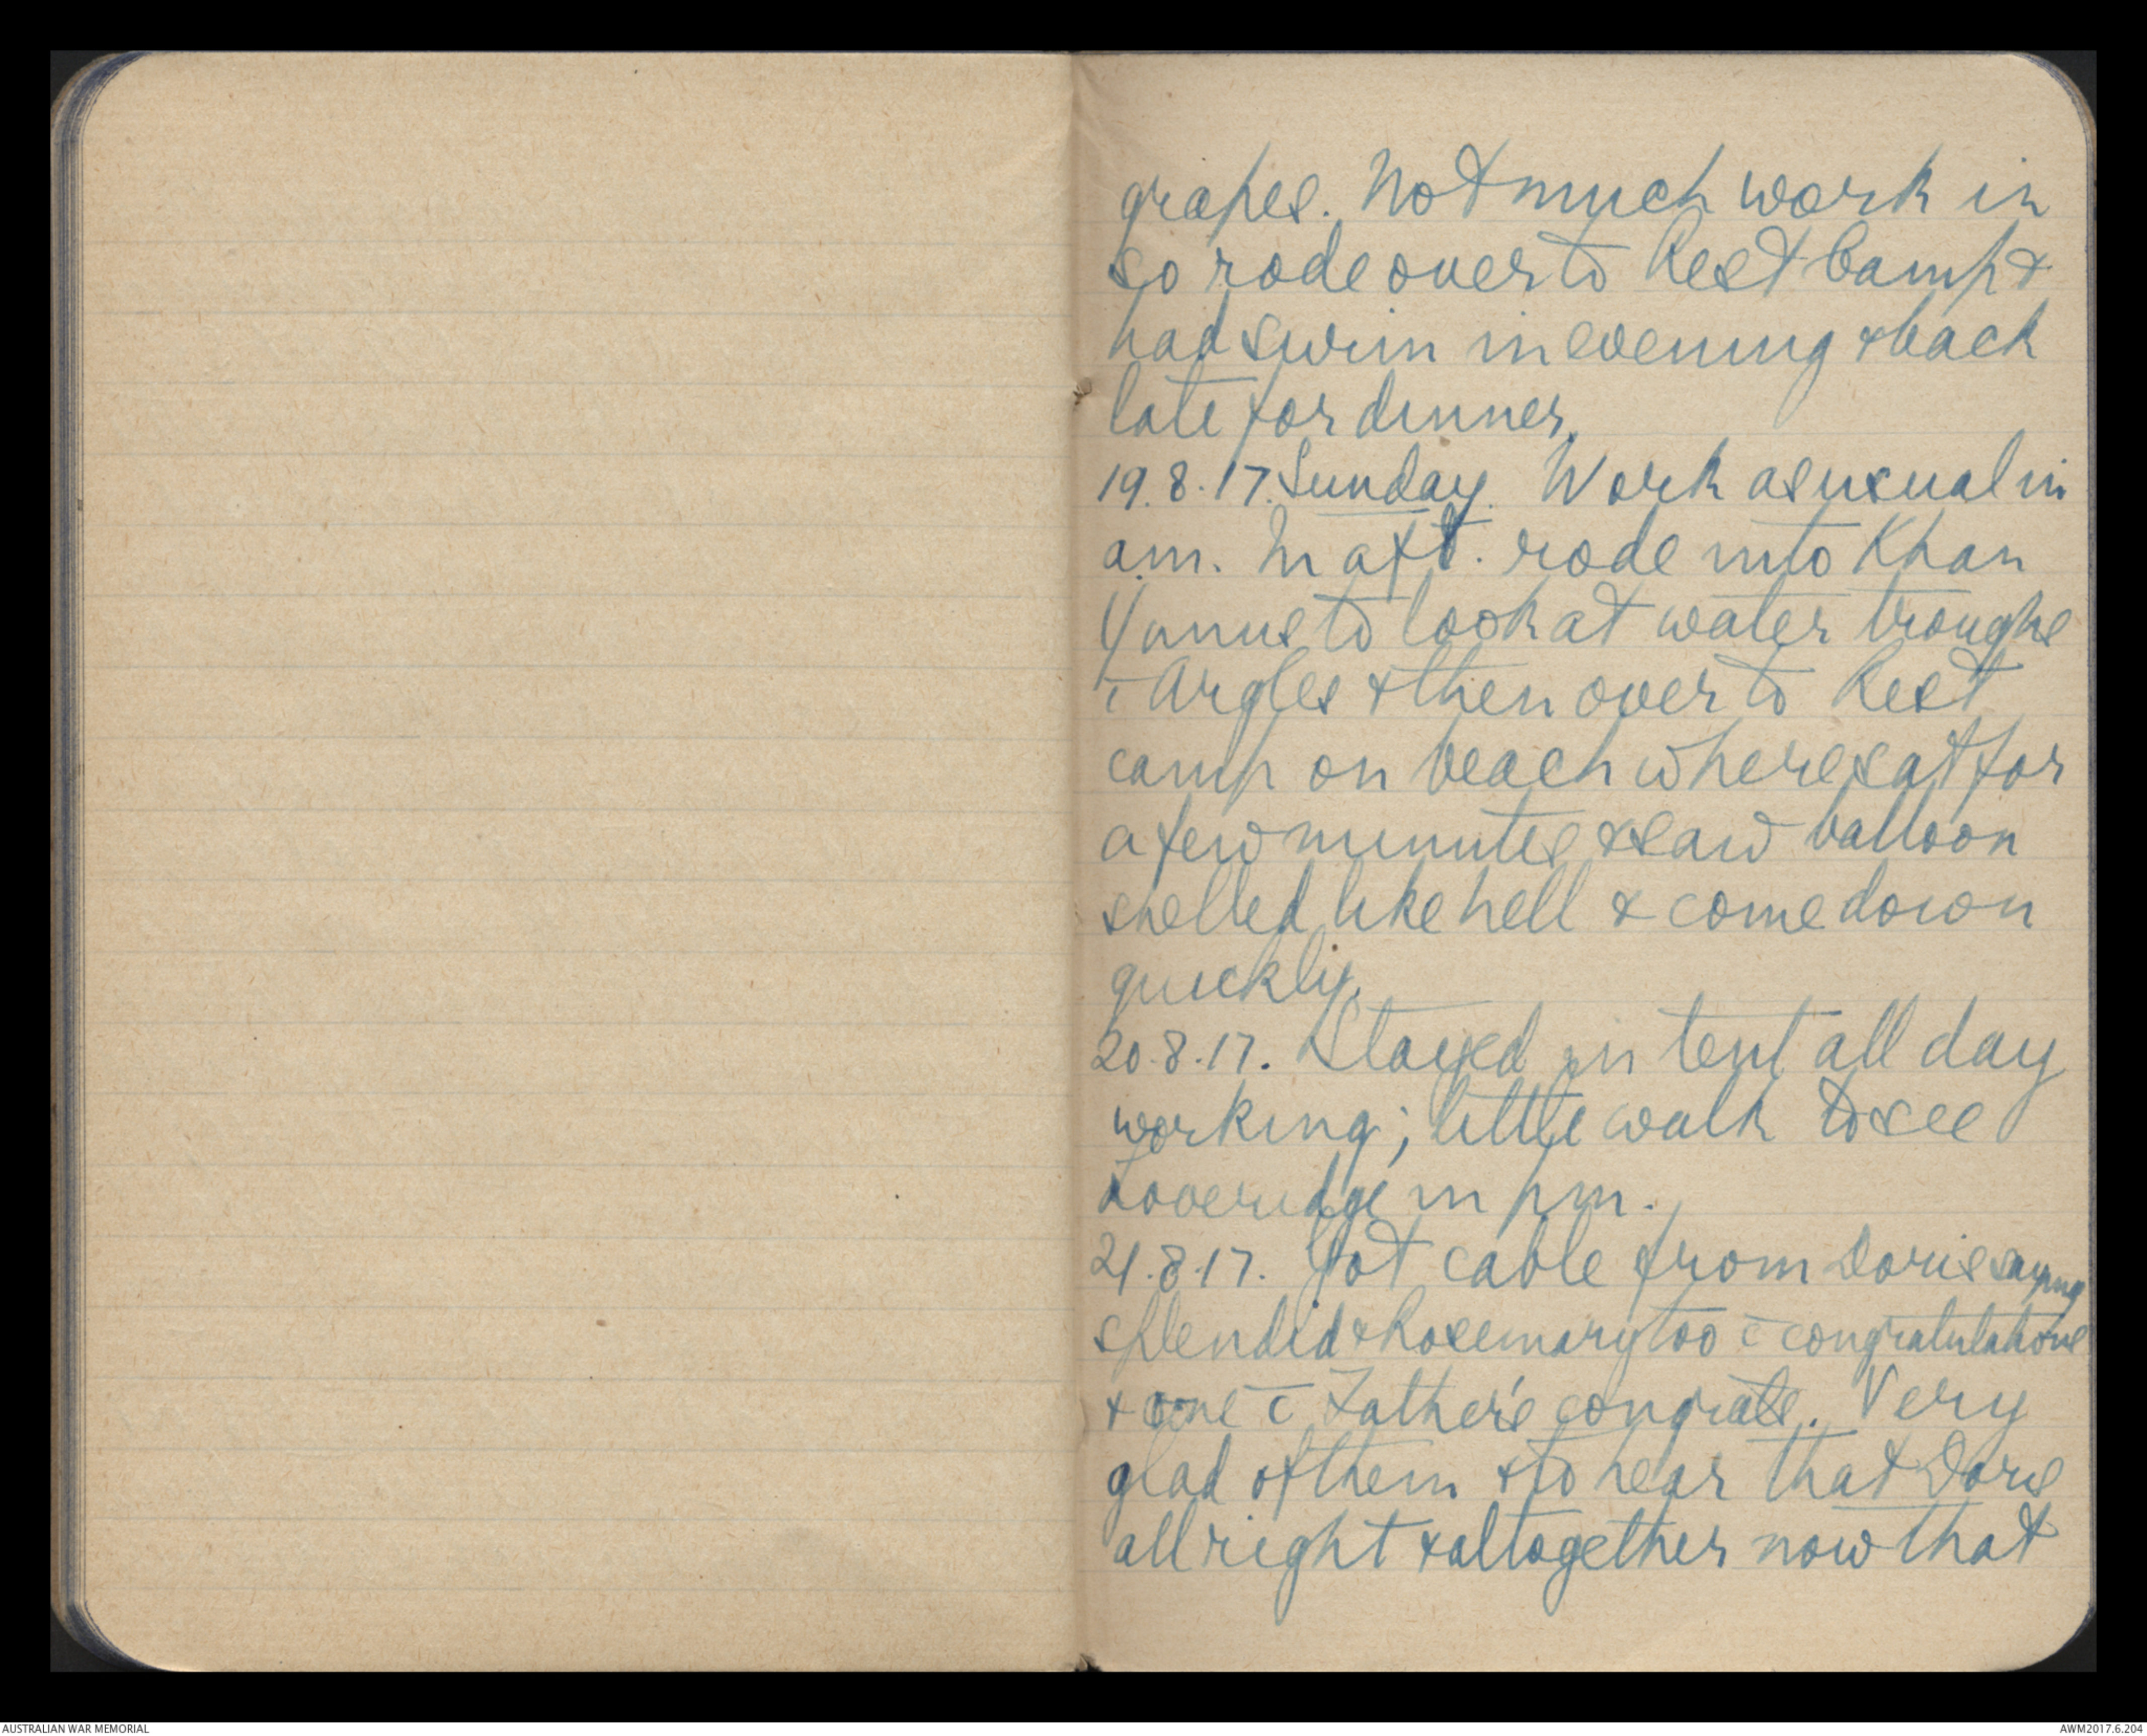 grapes. Not much work in
so rode over to Rest Camp &
had swim in evening & back
late for dinner.
19.8.17. Sunday. Work as usual in
a.m. In aft. rode into Khan
Yunus to look at water troughs
c̄ Argles & then over to Rest
camp on beach where sat for
a few minutes & saw balloon
shelled like hell & come down
quickly.
20.8.17. Stayed in tent all day
working; little walk to see
Loveridge in pm.
21.8.17. Got cable from Doris saying
splendid & Rosemary too c̄ congratulations
& one c̄ Father's congrats. Very
glad of them & to hear that Doris
all right & altogether now that
AUSTRALIAN WAR MEMORIAL
AWM2017.6.204